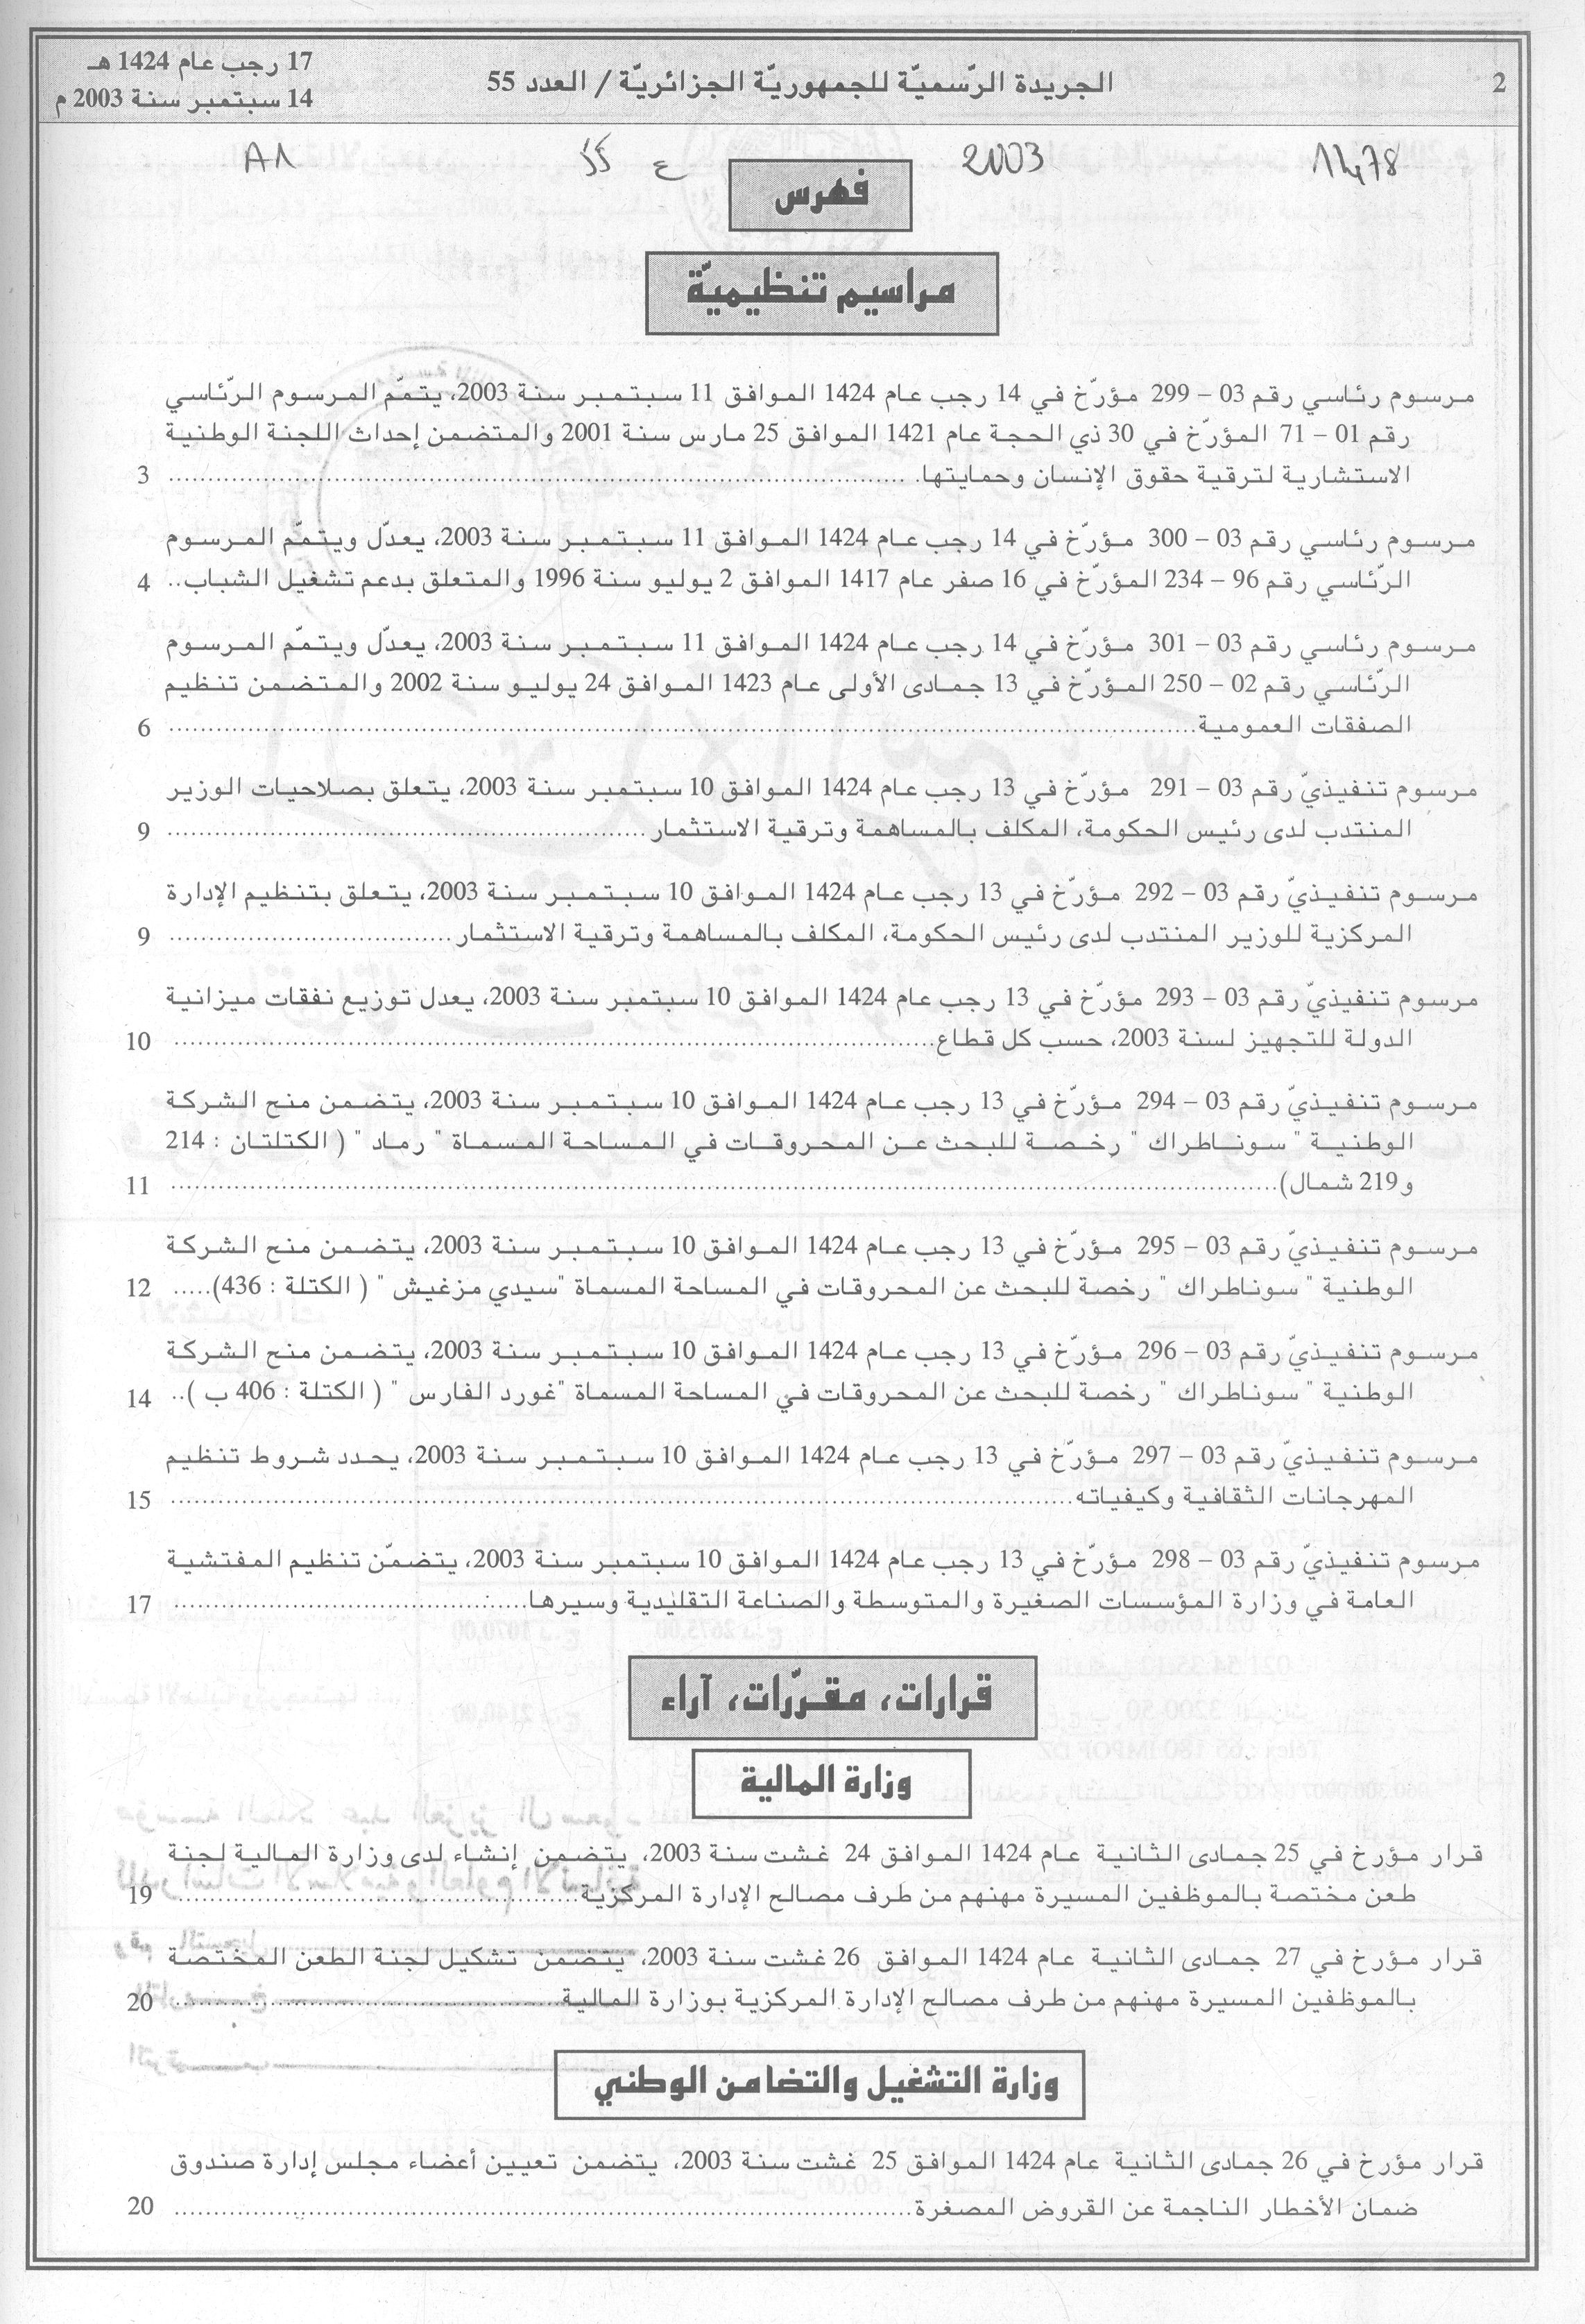 2
الجريدة الرّسميّة للجمهوريّة الجزائريّة / العدد 55
17 رجب عام 1424 هـ
14 سبتمبر سنة 2003 م
1478 2003 ع 55 A1
فهرس
مراسيم تنظيميّة
مرسوم رئاسي رقم 03 – 299 مؤرّخ في 14 رجب عام 1424 الموافق 11 سبتمبر سنة 2003، يتمّم المرسوم الرّئاسي
رقم 01 – 71 المؤرّخ في 30 ذي الحجة عام 1421 الموافق 25 مارس سنة 2001 والمتضمن إحداث اللجنة الوطنية
الاستشارية لترقية حقوق الإنسان وحمايتها. .......... 3
مرسوم رئاسي رقم 03 – 300 مؤرّخ في 14 رجب عام 1424 الموافق 11 سبتمبر سنة 2003، يعدّل ويتمّم المرسوم
الرّئاسي رقم 96 – 234 المؤرّخ في 16 صفر عام 1417 الموافق 2 يوليو سنة 1996 والمتعلق بدعم تشغيل الشباب.. 4
مرسوم رئاسي رقم 03 – 301 مؤرّخ في 14 رجب عام 1424 الموافق 11 سبتمبر سنة 2003، يعدّل ويتمّم المرسوم
الرّئاسي رقم 02 – 250 المؤرّخ في 13 جمادى الأولى عام 1423 الموافق 24 يوليو سنة 2002 والمتضمن تنظيم
الصفقات العمومية.......... 6
مرسوم تنفيذيّ رقم 03 – 291 مؤرّخ في 13 رجب عام 1424 الموافق 10 سبتمبر سنة 2003، يتعلق بصلاحيات الوزير
المنتدب لدى رئيس الحكومة، المكلف بالمساهمة وترقية الاستثمار.......... 9
مرسوم تنفيذيّ رقم 03 – 292 مؤرّخ في 13 رجب عام 1424 الموافق 10 سبتمبر سنة 2003، يتعلق بتنظيم الإدارة
المركزية للوزير المنتدب لدى رئيس الحكومة، المكلف بالمساهمة وترقية الاستثمار.......... 9
مرسوم تنفيذيّ رقم 03 – 293 مؤرّخ في 13 رجب عام 1424 الموافق 10 سبتمبر سنة 2003، يعدل توزيع نفقات ميزانية
الدولة للتجهيز لسنة 2003، حسب كل قطاع.......... 10
مرسوم تنفيذيّ رقم 03 – 294 مؤرّخ في 13 رجب عام 1424 الموافق 10 سبتمبر سنة 2003، يتضمن منح الشركة
الوطنية " سوناطراك " رخصة للبحث عن المحروقات في المساحة المسماة " رماد " ( الكتلتان : 214
و 219 شمال).......... 11
مرسوم تنفيذيّ رقم 03 – 295 مؤرّخ في 13 رجب عام 1424 الموافق 10 سبتمبر سنة 2003، يتضمن منح الشركة
الوطنية " سوناطراك " رخصة للبحث عن المحروقات في المساحة المسماة "سيدي مزغيش " ( الكتلة : 436)..... 12
مرسوم تنفيذيّ رقم 03 – 296 مؤرّخ في 13 رجب عام 1424 الموافق 10 سبتمبر سنة 2003، يتضمن منح الشركة
الوطنية " سوناطراك " رخصة للبحث عن المحروقات في المساحة المسماة "غورد الفارس " ( الكتلة : 406 ب ).. 14
مرسوم تنفيذيّ رقم 03 – 297 مؤرّخ في 13 رجب عام 1424 الموافق 10 سبتمبر سنة 2003، يحدد شروط تنظيم
المهرجانات الثقافية وكيفياته.......... 15
مرسوم تنفيذيّ رقم 03 – 298 مؤرّخ في 13 رجب عام 1424 الموافق 10 سبتمبر سنة 2003، يتضمّن تنظيم المفتشية
العامة في وزارة المؤسسات الصغيرة والمتوسطة والصناعة التقليدية وسيرها.......... 17
قرارات، مقرّرات، آراء
وزارة المالية
قرار مؤرخ في 25 جمادى الثانية عام 1424 الموافق 24 غشت سنة 2003، يتضمن إنشاء لدى وزارة المالية لجنة
طعن مختصة بالموظفين المسيرة مهنهم من طرف مصالح الإدارة المركزية.......... 19
قرار مؤرخ في 27 جمادى الثانية عام 1424 الموافق 26 غشت سنة 2003، يتضمن تشكيل لجنة الطعن المختصة
بالموظفين المسيرة مهنهم من طرف مصالح الإدارة المركزية بوزارة المالية.......... 20
وزارة التشغيل والتضامن الوطني
قرار مؤرخ في 26 جمادى الثانية عام 1424 الموافق 25 غشت سنة 2003، يتضمن تعيين أعضاء مجلس إدارة صندوق
ضمان الأخطار الناجمة عن القروض المصغرة.......... 20